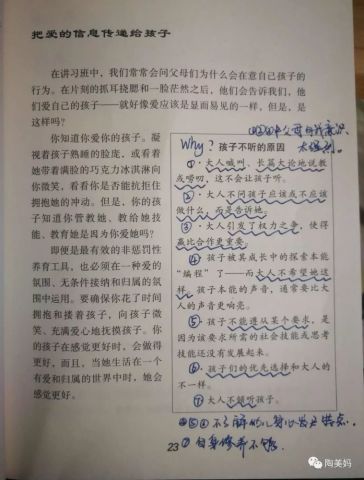 把爱的信息传递给孩子
在讲习班中，我们常常会问父母们为什么会在意自己孩子的
行为。在片刻的抓耳挠腮和一脸茫然之后，他们会告诉我们，他
们爱自己的孩子——就好像爱应该是显而易见的一样。但是，是
这样吗？
你知道你爱你的孩子。凝
视着孩子熟睡的脸庞，或看着
她带着满脸的巧克力冰淇淋向
你微笑，看看你是否能抗拒住
拥抱她的冲动。但是，你的孩
子知道你管教她、教给她技
能、教育她是因为你爱她吗？
即便是最有效的非惩罚性
养育工具，也必须在一种爱的
氛围、无条件接纳和归属的氛
围中运用。要确保你花了时间
拥抱和搂着孩子，向孩子微
笑、充满爱心地抚摸孩子。你
的孩子在感觉更好时，会做得
更好，而且，当她生活在一个
有爱和归属的世界中时，她会
感觉更好。
父母
Why？孩子不听的原因
①·大人喊叫、长篇大论地说教
或唠叨，这不会让孩子听。
②·大人不问孩子应该或不应该
做什么，而是告诉她。
③·大人引发了权力之争，使得
赢比合作更重要。
④·孩子被其成长中的探索本能
“编程”了——而大人不希望她这
样。孩子本能的声音，通常要比大
人的声音更响亮。
⑤·孩子不能遵从某个要求，是
因为该要求所需的社会技能或思考
技能还没有发展起来。
⑥·孩子们的优先选择和大人的
不一样。
⑦·大人不倾听孩子。
不了解幼儿身心发展特点。
自身修养不够
23
陶美妈